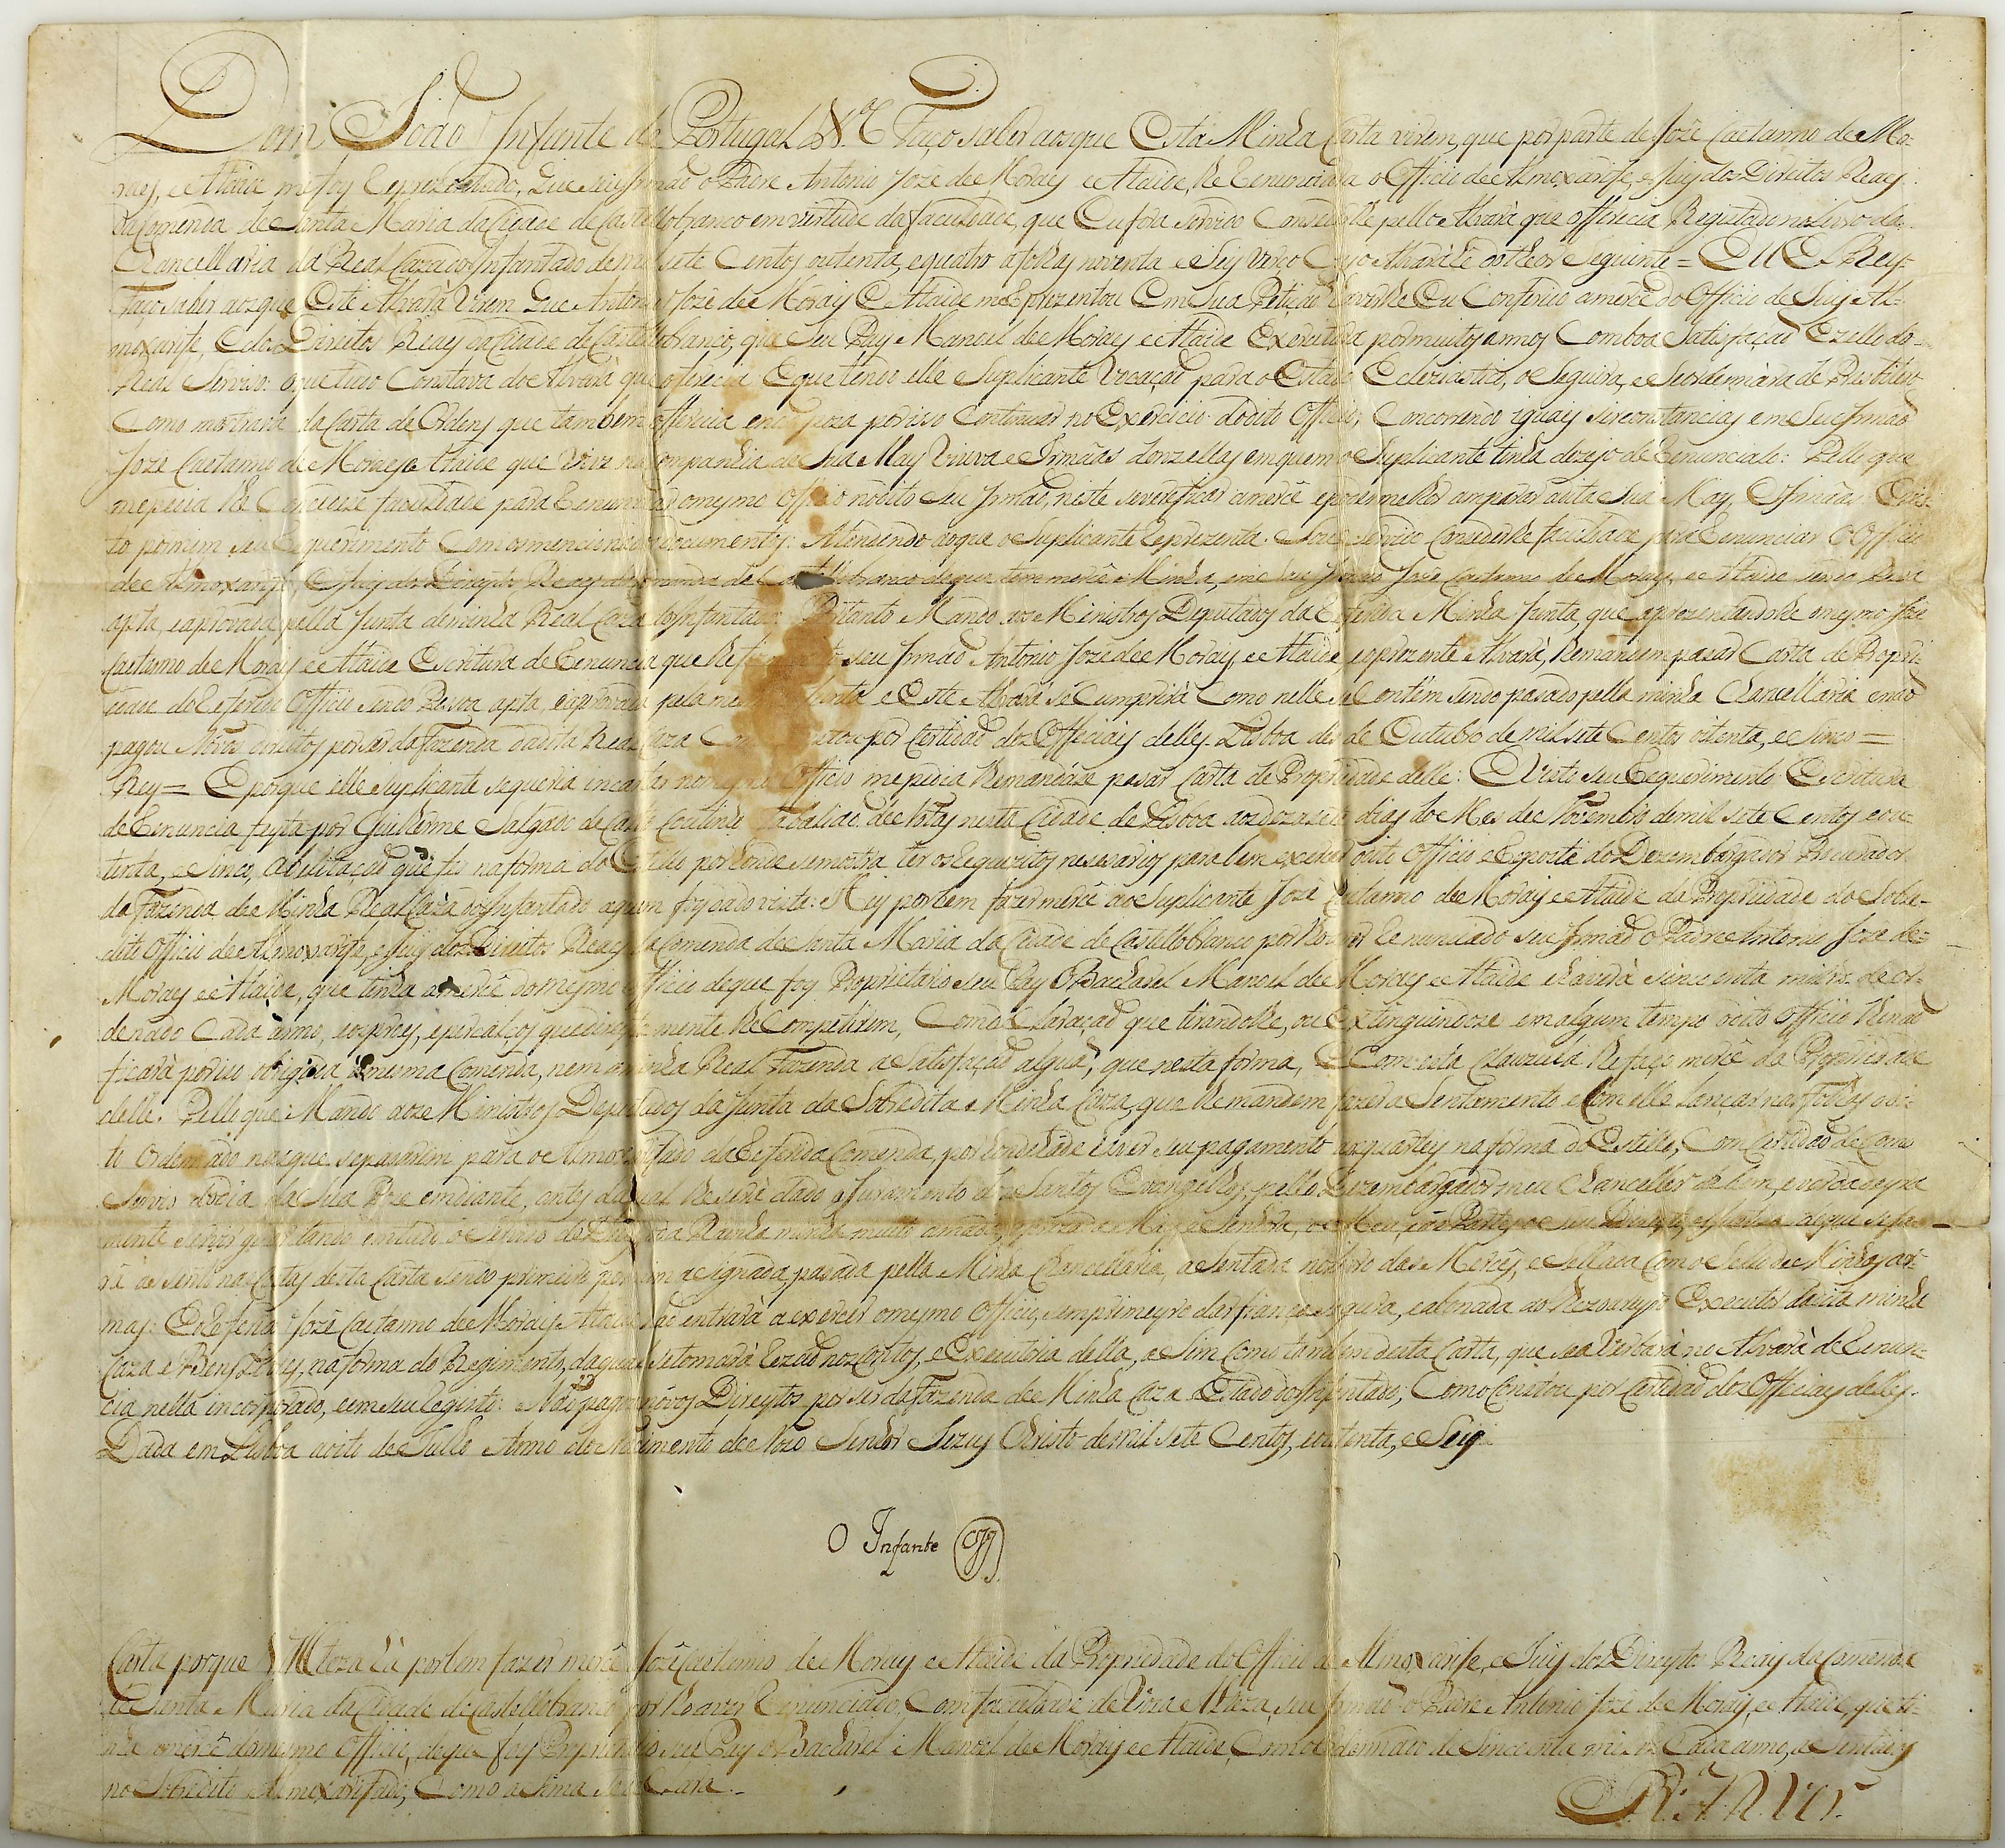 Dom João Infante de Portugal &.ª Faço saber aos que Esta Minha Carta virem, que por parte de José Caetanno de Mo-
raes, e Ataide me foy Reprezentado, Que seu Irmão o Padre Antonio José de Moraes e Ataide, Renunciara o Officio de Almoxarife, e Juiz dos Direitos Reaes
da Comenda de Santa Maria da Cidade de Castellobranco em virtude da faculdade, que Eu fora servido Conceder lhe pello Alvará que offerecia Registado no Livro da
Chancellaria da Real Caza do Infantado de mil sete Centos outenta, e quatro a folhas noventa e Seis verço Cujo Alvará hé do theor Seguinte = EU ELRey
Faço saber aos que Este Alvará Virem Que Antonio José de Moraes e Ataide me Reprezentou Em Sua Petição fora lhe Eu Conferido a mercê do Officio de Juiz Al-
moxarife, e dos Direitos Reaes da Cidade de Castellobranco, que Seu Pay Manoel de Moraes e Ataide Exercitara por muitos annos Com boa Satisfação Ezello do
Real Serviço: o que tudo Constava do Alvará que offerecia E que tendo elle Suplicante Vocação para o Estado Eclesiastico, o Seguira, e Se ordenára de Presbitero
Como mostrava da Carta de Ordens que tambem offerecia e não poza por isso Continuar no Exercicio do dito Officio, Concorrendo iguais sirconstancias em Seu Irmão
Jozé Caetanno de Moraes e Ataide que Vive na Companhia de Sua May Viuva e Irmãas donzellas em quem o Suplicante tinha dezejo de Renuncialo: Pello que
me pedia lhe Concedesse faculdade para Renunciar o mesmo Officio no dito Seu Irmão, neste severeficar a mercê e poder melhor amparar a dita Sua May, e Irmãas. E vis-
to por mim seu Requerimento Com os mencionados documentos: Atendendo ao que o Suplicante Reprezenta. Sou Servido Conceder lhe faculdade para Renunciar o Officio
de Almoxarife, e Juiz dos Direytos Reaes da Comenda de Castellobranco de que tem mercê Minha, em Seu Irmão José Caetanno de Moraes, e Ataide sendo Pesoa
apta, e aprovada pella Junta de minha Real Caza do Infantado: Portanto Mando aos Ministros Deputados da Referida Minha Junta, que aprezentandolhe o mesmo José
Caetanno de Moraes e Ataide Escritura de Renuncia que lhe fizer seu Irmão Antonio José de Moraes, e Ataide e o prezente Alvará, lhe mandem pasar Carta de Propri-
edade do Referido Officio sendo Pesoa apta, e aprovada pela mesma Junta e Este Alvará se Cumprirá Como nelle se Contem sendo pasado pella minha Chancellaria e não
pagou Novos direitos por ser da Fazenda da dita Real Caza Como constou por Certidão dos Officiaes delles. Lisboa des de Outubro de mil sete Centos oitenta, e Sinco =
Rey = E porque elle Suplicante se queria incartar no mesmo Officio me pedia lhe mandáse pasar Carta de Propriedade delle: E visto seu Requerimento Escritura
de Renuncia feyta por Guilherme Salgado de Castro Coutinho Tabaliao de Notas nesta Cidade de Lisboa aos dezaseis dias do Mes de Novembro de mil sete Centos e ou-
tenta, e Sinco, Abilitação que fes na forma do Estillo por donde se mostra ter os Requizitos nesesarios para bem exercer o dito Officio e Reposta do Dezembargador Procurador
da Fazenda de Minha Real Caza do Infantado a quem foy dado vista: Hey por bem fazer mercê ao Suplicante José Caetanno de Moraes e Ataide da Propriedade do Sobre-
dito Officio de Almoxarife, e Juiz dos Direitos Reaes da Comenda de Santa Maria da Cidade de Castellobranco por lho haver Renunciado seu Irmão o Padre Antonio Jose de
Moraes e Ataide, que tinha a mercê do mesmo Officio de que foy Proprietario seu Pay O Bacharel Manoel de Moraes e Ataide e haverá sincoenta mil rs. de or-
denado Cada anno, e os proes, e percalços que direytamente lhe Competirem, Com declaração que tirandolhe, ou extinguindose em algum tempo o dito Officio lhe não
ficará por isso obrigada a mesma Comenda, nem a minha Real Fazenda a Satisfação algua, que nesta forma, e Com esta Clauzula lhe faço mercê da Propriedade
delle. Pello que Mando aos Ministros Deputados da Junta da Sobredita Minha Caza, que lhe mandem fazer a Sentamento e Com elle Lançar nas folhas o di-
to Ordenado nas que se pasarem para o Almoxarifado da Referida Comenda, por donde hade haver seu pagamento aos quarteis na forma do Estillo, Com Certidão de Como
Servio o dia da Sua Pose em diante, antes da qual lhe será dado o Juramento dos Santos Evangelhos, pello Dezembargador meu Chanceller de bem, e verdadeyra
mente Servir goardando em tudo o Serviço da Rainha minha muito amada, e prezada May e Senhora, o Meu, e ás Partes o seu Direyto, e Justiça de que se fa-
rá asento nas Costas desta Carta sendo primeiro por mim asignada, pasada pella Minha Chancellaria, a Sentada no Livro das Merces, e Sellada Com o Sello de Minhas ar-
mas: E o Referido José Caetanno de Moraes e Ataide não entrará a exercer o mesmo Officio, sem primeyro dar fiança segura, e abonada ao Thezoureyro Executor da dita minha
Caza, na forma do Regimento, da qual se tomará Rezão nos Contos, e Executoria della, a Sim Como tambem desta Carta, que se a Verbará no Alvará de Renun-
cia nella incorporado, e em seu Registo. Não pagou novos Direytos por ser da Fazenda de Minha Caza e Estado do Infantado, Como Constou por Certidão dos Officiaes delles.
Dada em Lisboa a oito de Julho Anno do Nascimento de Noso Senhor Jezus Christo de mil sete Centos, e outenta, e Seis
O Infante
Carta porque V. Alteza há por bem fazer mercê a José Caetanno de Moraes e Ataide da Propriedade do Officio de Almoxarife, e Juiz dos Direytos Reaes da Comenda
de Santa Maria da Cidade de Castellobranco por lho aver Renunciado, Com faculdade de Vossa Alteza, seu Irmão o Padre Antonio José de Moraes, e Ataide, que ti-
nha a mercê do mesmo Officio, de que foy Proprietario seu Pay o Bacharel Manoel de Moraes e Ataide, Com o Ordennado de Sincoenta mil rs. Cada anno, a Sentados
no Sobredito Almoxarifado, Como a Sima se declara.